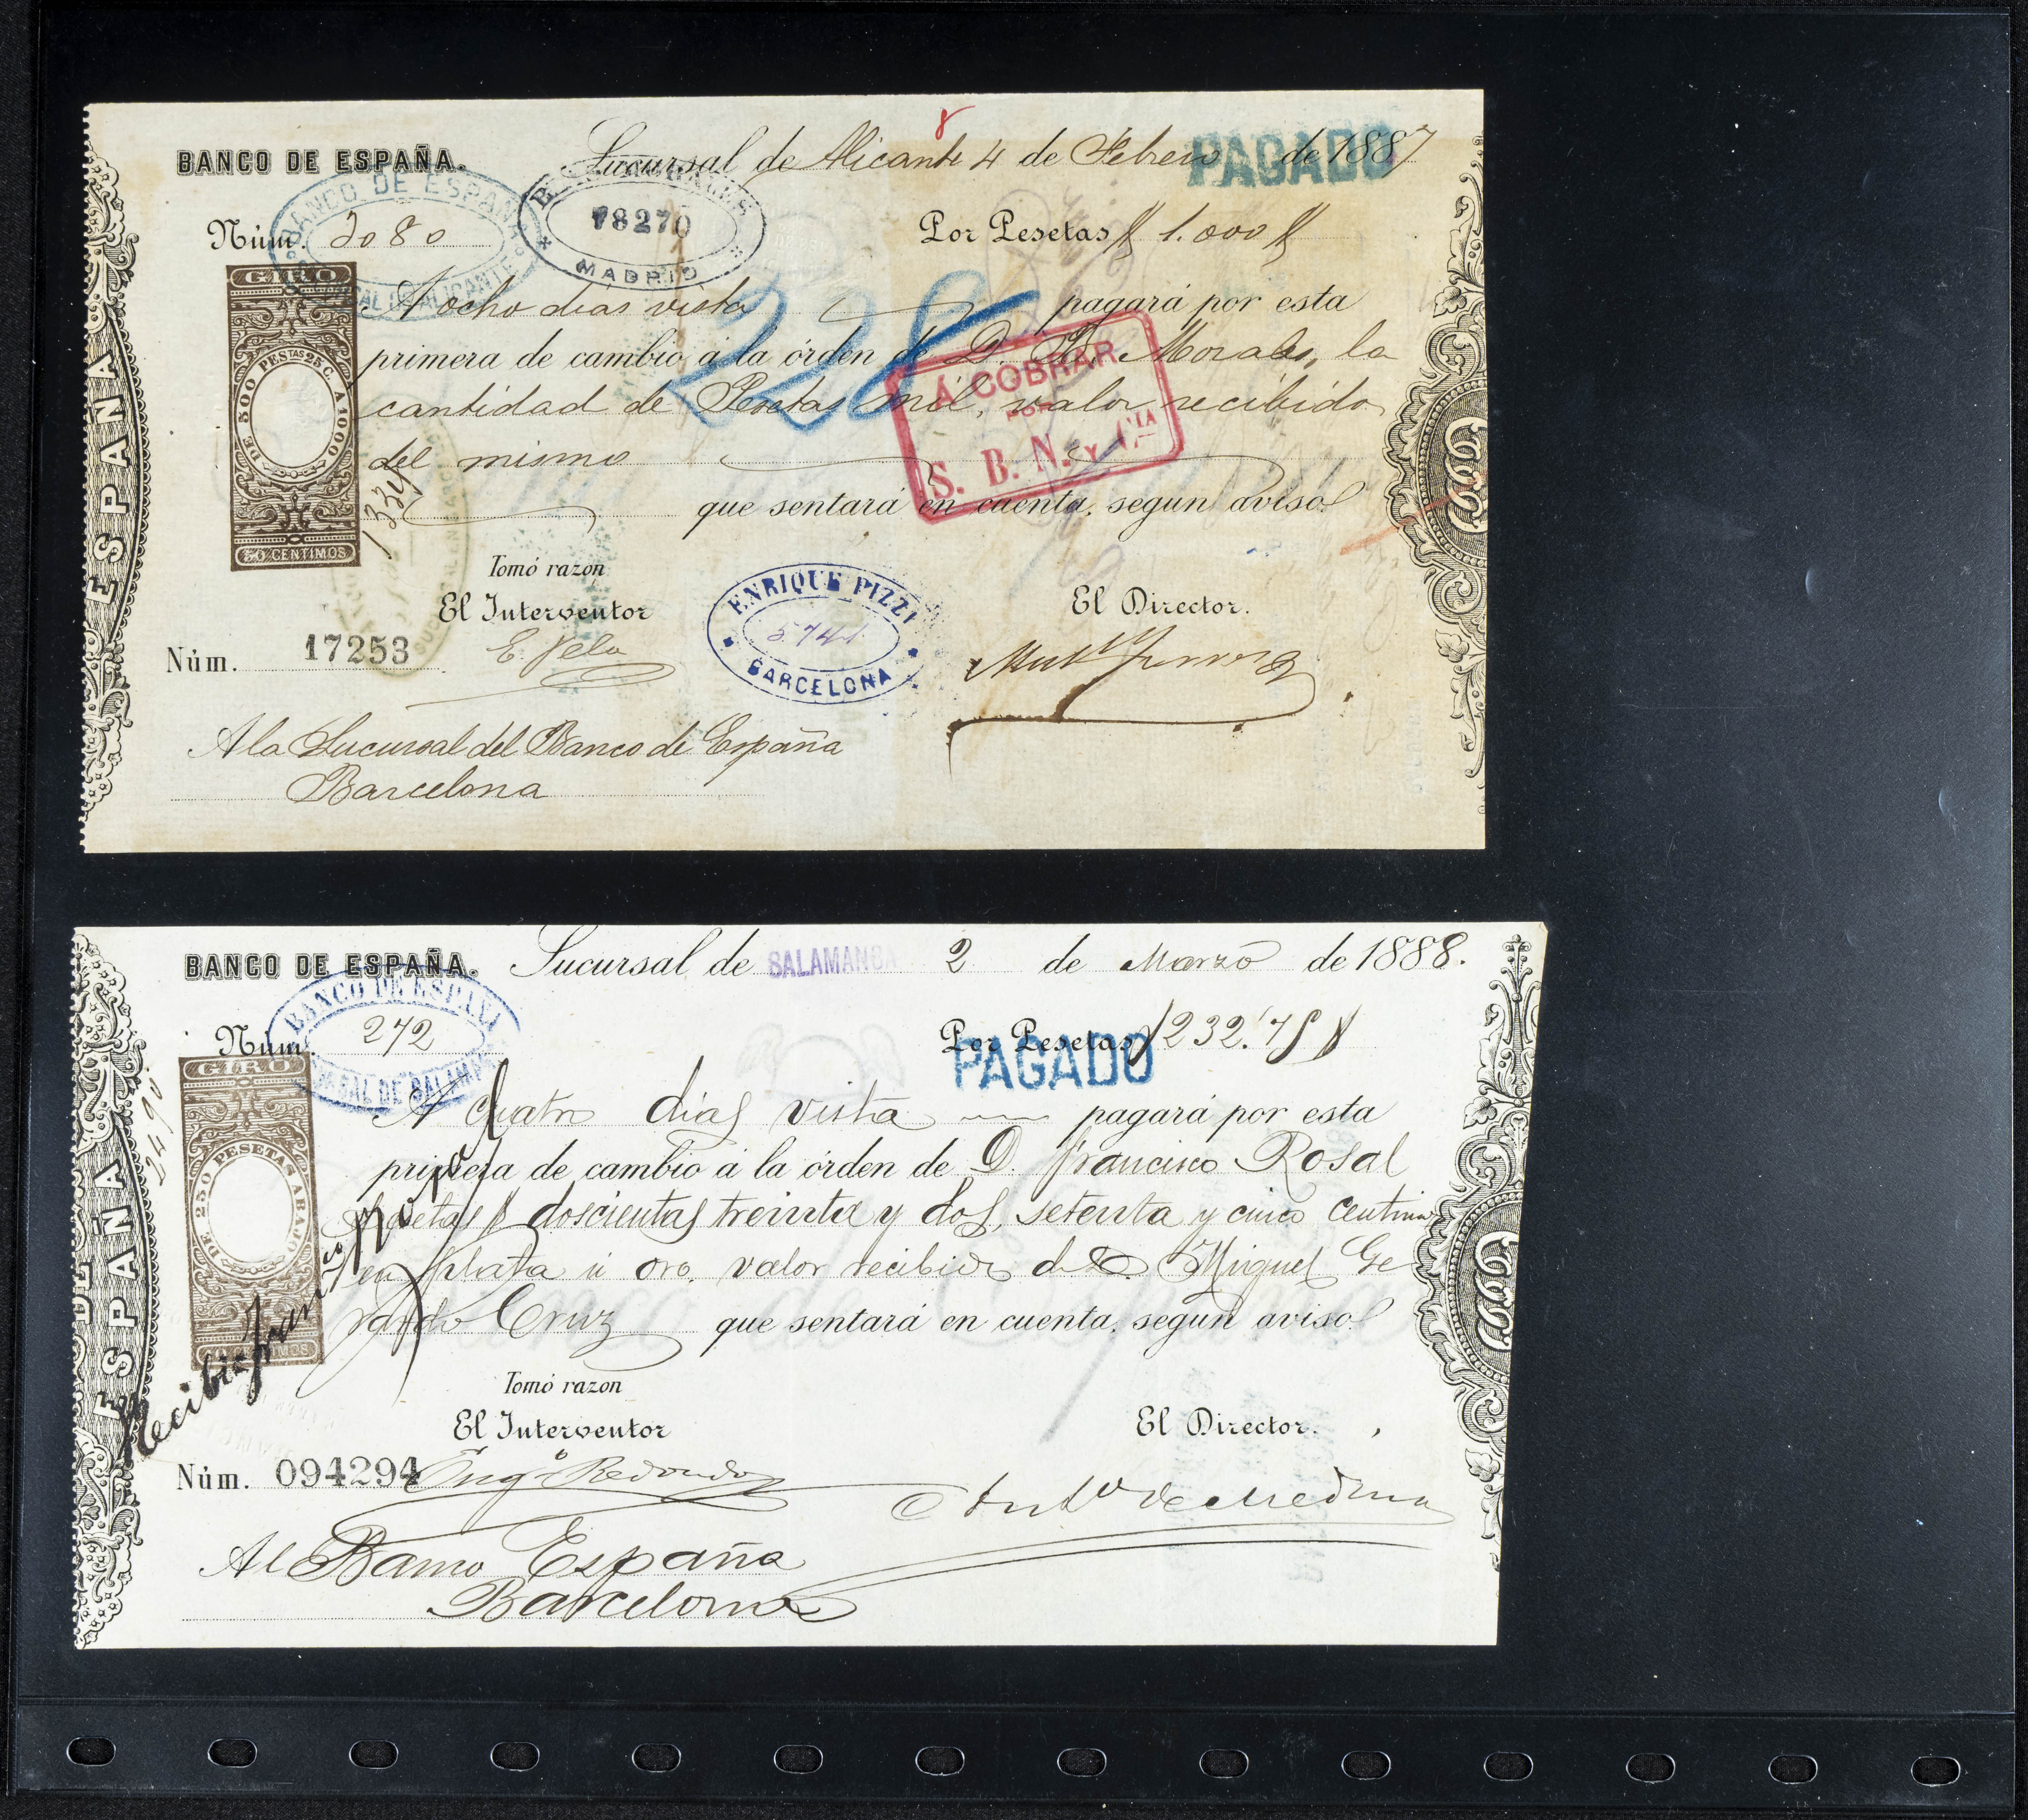 BANCO DE ESPAÑA. Sucursal de Alicante 4 de Febrero de 1887
PAGADO
BANCO DE ESPAÑA
SUCURSAL DE ALICANTE
78270
MADRID
Núm. 2080 Por Pesetas 1.000
GIRO
DE 500 PESTAS 25 C. A 1000
50 CENTIMOS
A ocho dias vista pagará por esta
primera de cambio á la órden de D. B. Morales, la
cantidad de Pesetas mil, valor recibido
del mismo
que sentará en cuenta, segun aviso.
228
Á COBRAR
POR
S. B. N. Y CIA
1334
Tomó razon
El Interventor El Director.
ENRIQUE PIZZI
5741
BARCELONA
Núm. 17253 E. Vela
A la Sucursal del Banco de España
Barcelona
ESPAÑA
BANCO DE ESPAÑA. Sucursal de SALAMANCA 2 de Marzo de 1888.
BANCO DE ESPAÑA
SUCURSAL DE SALAMANCA
Núm. 272 Por Pesetas 232.75
PAGADO
GIRO
DE 250 PESETAS ABAJO
10 CENTIMOS
A Cuatro dias vista pagará por esta
primera de cambio á la órden de D. Francisco Rosal
Pesetas doscientas treinta y dos, setenta y cinco centimos
en plata ú oro, valor recibido de D. Miguel Ge
rardo Cruz que sentará en cuenta, segun aviso.
Recibí
Tomó razon
El Interventor El Director.
Núm. 094294 Eugº Redondo Antº de Medina
Al Banco España
Barcelona
DE ESPAÑA